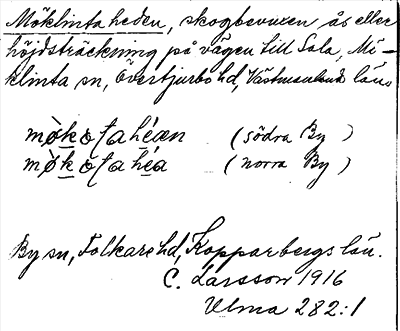 Möklinta heden, skogbevuxen ås eller
höjdsträckning på vägen till Sala, Mö-
klinta sn, Övertjurbo hd, Västmanlands län.
(södra By)
(norra By)
By sn, Folkare hd, Kopparbergs län.
C. Larsson 1916
Ulma 282:1